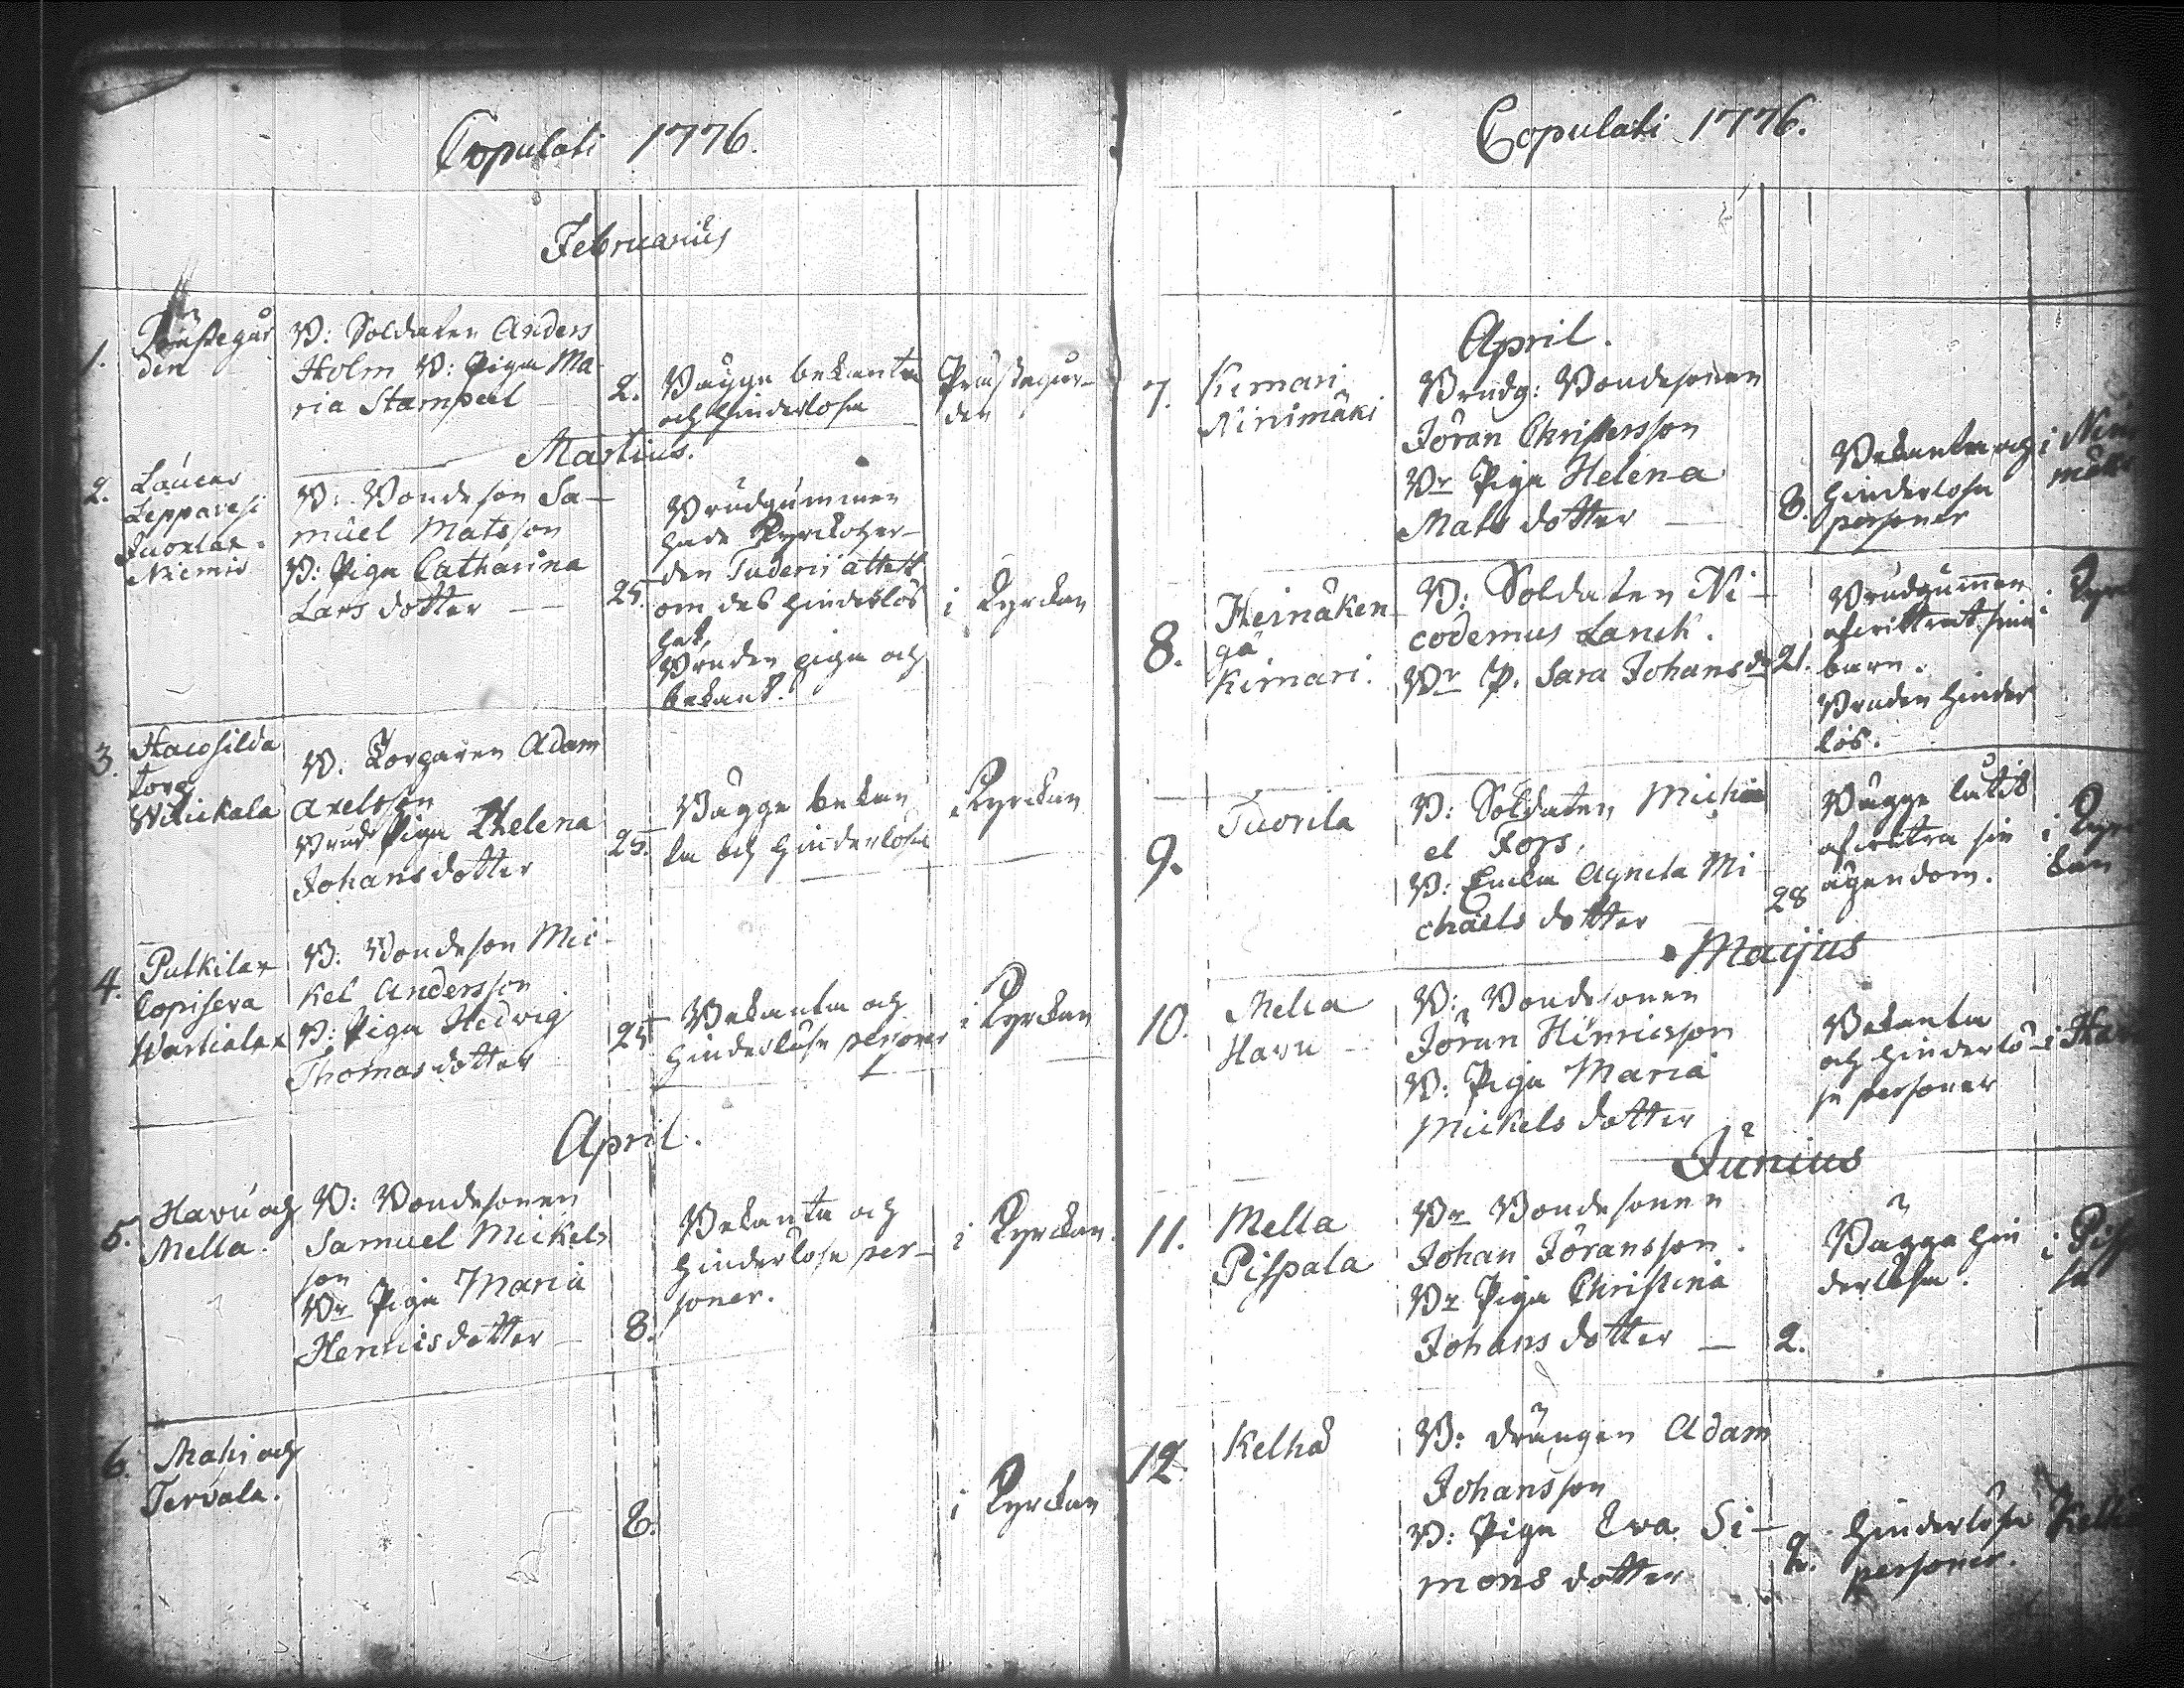 Copulati 1776.
Februarius
1.
Prästegår
den
B: Soldaten Anders
Holm B: Pigan Ma-
ria Stampeel
2.
Bägge bekanta
och hinderlösa
Prästegår-
den
Martius.
2.
Laucas
Leppavesi
Niemis
B: Bondeson Sa-
muel Matsson
B: Pigan Catharina
Lars dotter —
25.
Brudgummen
om des hinderlös
het,
Bruden piga och
bekant.
i Kyrckan
3.
torp
B. Torparen Adam
Axelsson
Brud Pigan Helena
Johans dotter
25.
Bägge bekan
ta och hinderlösa
i Kyrckan
4.
Putkilax
B. Bondeson Mic-
kel Andersson
B: Pigan Hedwig
Thomas dotter
25
Bekanta och
hinderlösa personer
i Kyrckan
April.
5.
Havu och
Mella.
B: Bondesonen
Samuel Mickels
son
Br Pigan Maria
Henricsdotter —
8.
Bekanta och
hinderlösa per-
soner.
i Kyrckan.
6.
Mahi och
Tervala.
8.
i Kyrckan
Copulati 1776.
April.
7.
Kimari
Ninimäki
Brudg: Bondesonen
Jöran Christersson
Br Pigan Helena
Mats dotter —
8.
Bekanta och
hinderlösa
personer
i Nini
mäki
8.
Heinäken-
gä
Kimari.
B: Soldaten Ni-
codemus Lanck.
Br P. Sara Johans dr
21.
Brudgummen
afvittrat sina
barn.
Bruden hinder
lös.
i Kyr
9.
Tuorila
B: Soldaten Micha
el Fors,
B: Enkan Agneta Mi
chaels dotter
28
Bägge låtit
afvittra sin
ägendom.
i Kyrc
kan
Maijus
10.
Mella
Havu —
B: Bondesonen
Jöran Hinricsson
B: Pigan Maria
Mickels dotter
Bekanta
och hinderlö-
sa personer
i Hav
Junius
11.
Mella
Pispala
Br Bondesonen
Johan Jöransson.
Br Pigan Christina
Johans dotter —
2.
Bägge hin
derlösa.
i Pisp
la
12.
Kelhä
B: drängen Adam
Johansson
B: Pigan Eva Si-
mons dotter
2.
hinderlösa
personer.
Kelh